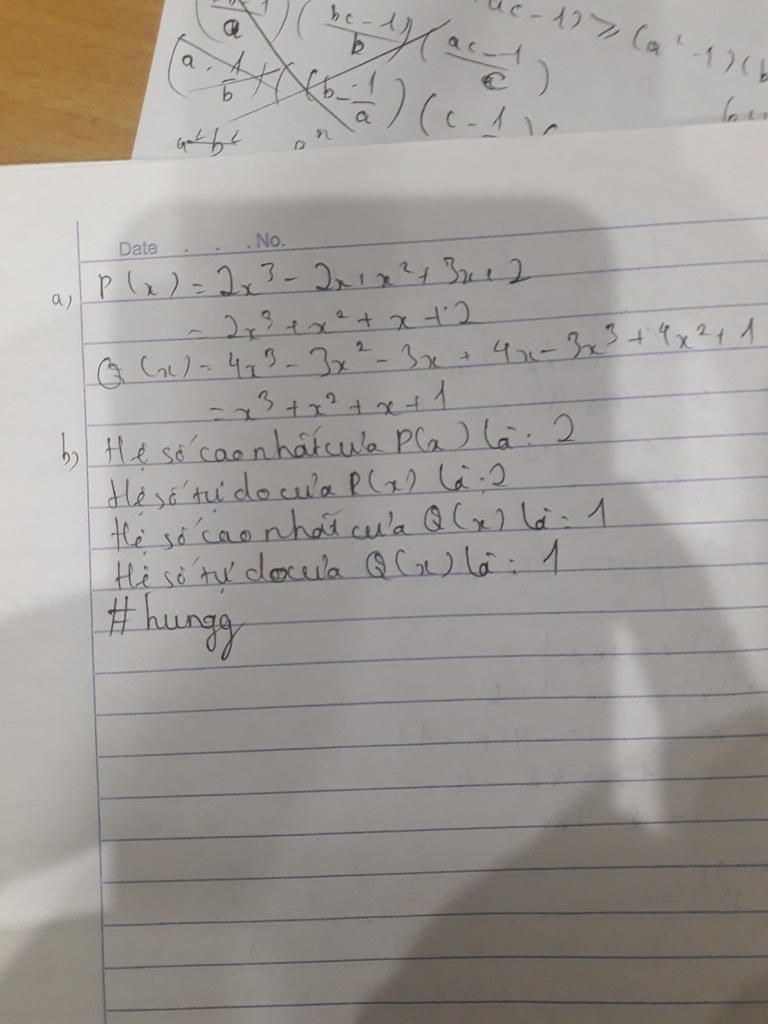 a
( bc-1 / b )
( ac-1 / c )
ac-1) ≥ (a²-1)(b
( a . 1/b ) ( b - 1/a ) ( c - 1
a² b²
Date . . . No.
a) P(x) = 2x³ - 2x + x² + 3x + 2
= 2x³ + x² + x + 2
Q(x) = 4x³ - 3x² - 3x + 4x - 3x³ + 4x² + 1
= x³ + x² + x + 1
b) Hệ số cao nhất của P(x) là: 2
Hệ số tự do của P(x) là: 2
Hệ số cao nhất của Q(x) là: 1
Hệ số tự do của Q(x) là: 1
#hungg